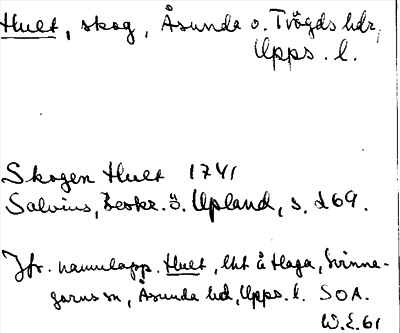 Hult, skog, Åsunda o. Trögds hdr,
Upps. l.
Skogen Hult 1741
Salvius, Beskr. ö. Upland, s. 269.
Jfr. namnlapp. Hult, lht å Haga, Svinne-
garns sn, Åsunda hd, Upps. l. SOA.
W.E. 61